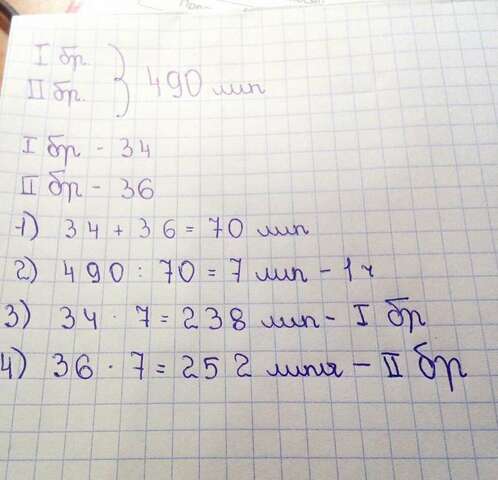 I бр.
II бр. } 490 лип
I бр - 34
II бр - 36
1) 34 + 36 = 70 лип
2) 490 : 70 = 7 лип - 1 ч
3) 34 · 7 = 238 лип - I бр
4) 36 · 7 = 252 липы - II бр